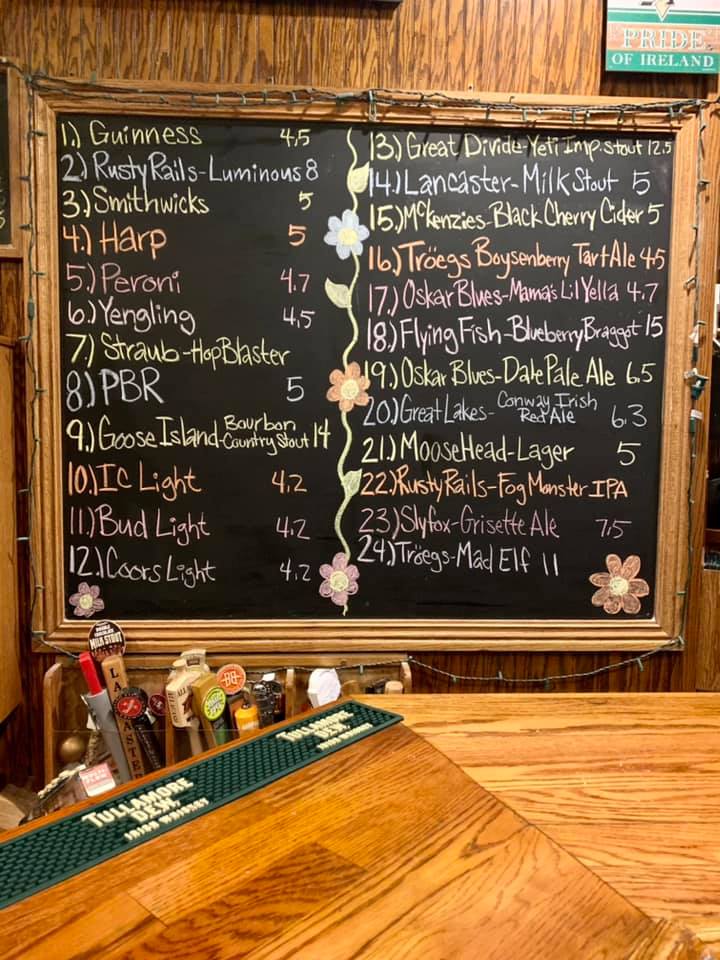 PRIDE
OF IRELAND
1.) Guinness 4.5
2.) Rusty Rails-Luminous 8
3.) Smithwicks 5
4.) Harp 5
5.) Peroni 4.7
6.) Yengling 4.5
7.) Straub-HopBlaster
8.) PBR 5
9.) Goose Island-Bourbon Country Stout 14
10.) IC Light 4.2
11.) Bud Light 4.2
12.) Coors Light 4.2
13.) Great Divide-Yeti Imp. Stout 12.5
14.) Lancaster-Milk Stout 5
15.) McKenzies-Black Cherry Cider 5
16.) Tröegs Boysenberry Tart Ale 4.5
17.) Oskar Blues-Mama's Lil Yella 4.7
18.) Flying Fish-Blueberry Braggot 15
19.) Oskar Blues-Dale Pale Ale 6.5
20.) Great Lakes-Conway Irish Red Ale 6.3
21.) MooseHead-Lager 5
22.) Rusty Rails-Fog Monster IPA
23.) Slyfox-Grisette Ale 7.5
24.) Tröegs-Mad Elf 11
MILK STOUT
TULLAMORE
DEW.
IRISH WHISKEY
TULLAMORE
DEW.
IRISH WHISKEY